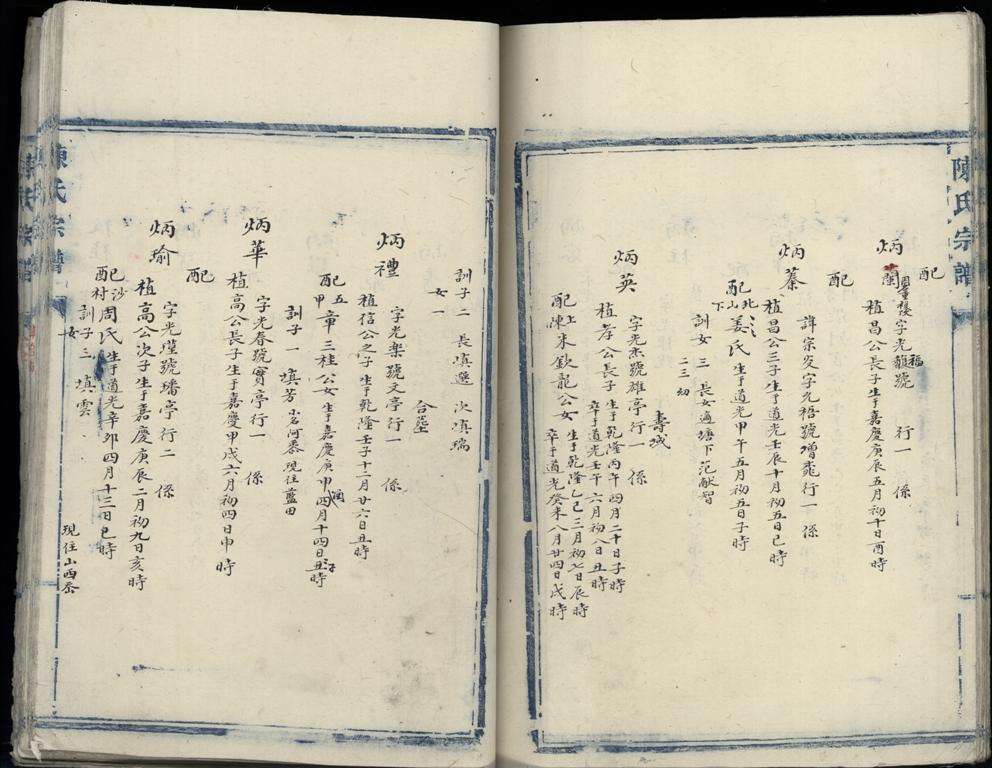 陳氏宗譜
配
炳蘭
字光韻號 行一 係
福
植昌公長子生于嘉慶庚辰五月初十日酉時
配
炳蓁
諱宗安字光梧號增苑行一 係
植昌公三子生于道光壬辰十月初五日巳時
配 北山下 姜氏生于道光甲午五月初五日子時
訓女三 長女適塘下范猷智
二三幼
壽域
炳英
字光杰號雄亭行一 係
植孝公長子生于乾隆丙午四月二十日子時
卒于道光壬午六月初八日丑時
配 上陳 末欽龍公女生于乾隆乙巳三月初七日辰時
卒于道光癸未八月廿四日戌時
訓子二 長填選 次填瑞
女一
合塋
炳禮
字光樂號文亭行一 係
植信公之子生于乾隆壬子十二月廿六日丑時
配 五甲 章三桂公女生于嘉慶庚申四月十四日丑時
訓子一 填芳 小名河泰現住藍田
炳華
字光春號賓亭行一 係
植高公長子生于嘉慶甲戌六月初四日申時
配
炳瑜
字光瑾號璠亭行二 係
植高公次子生于嘉慶庚辰二月初九日亥時
配 沙村 周氏生于道光辛卯四月十三日巳時
訓子三 填雲
女
現住山西泰
陳氏宗譜